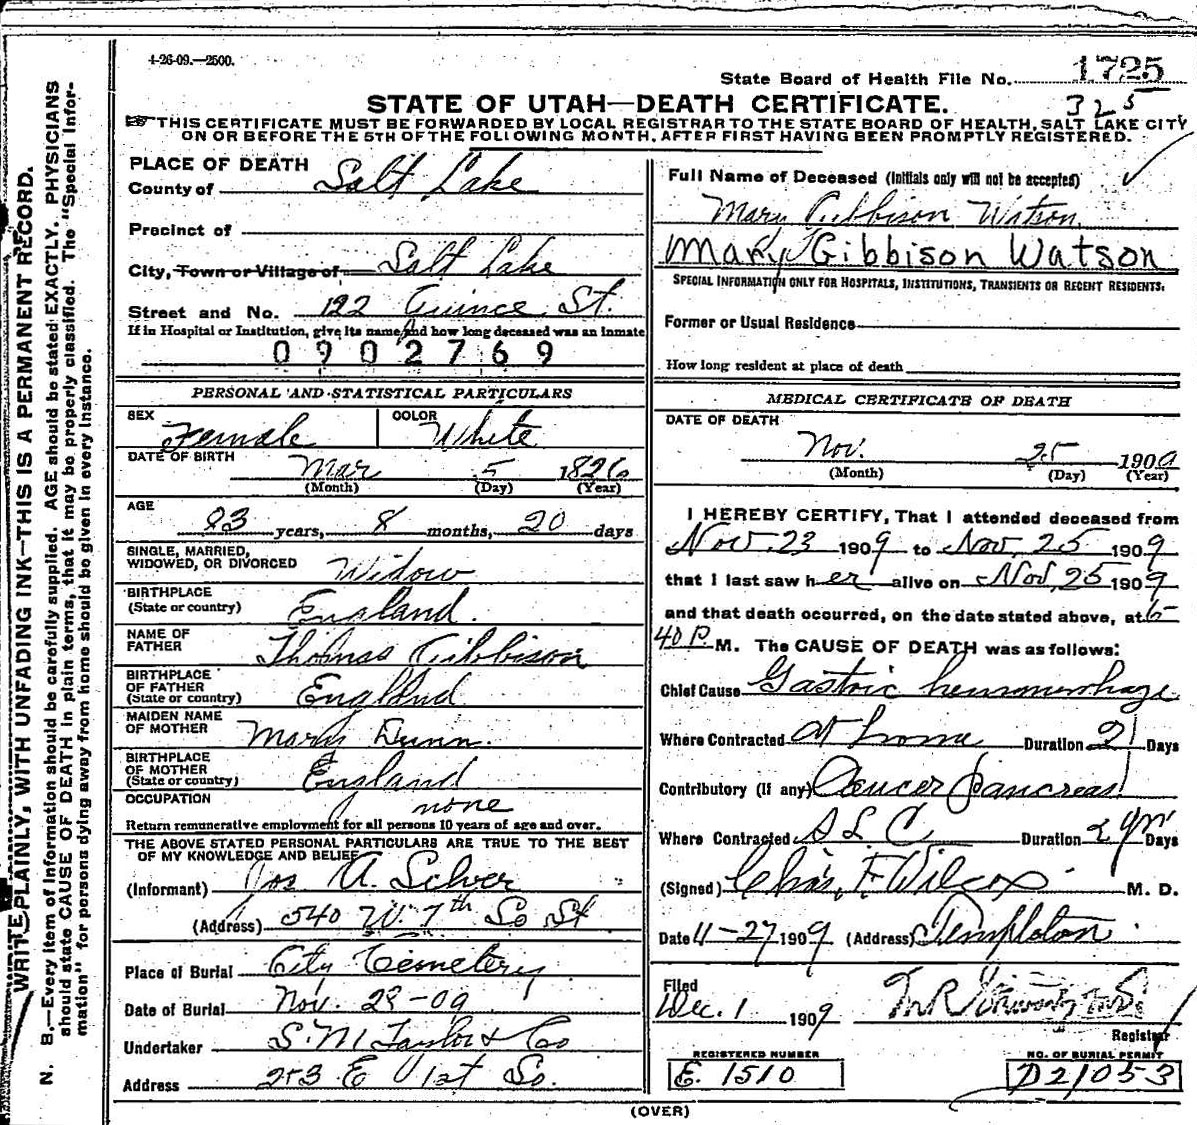 4-26-09.—2500.
State Board of Health File No. 1725
325
STATE OF UTAH—DEATH CERTIFICATE.
THIS CERTIFICATE MUST BE FORWARDED BY LOCAL REGISTRAR TO THE STATE BOARD OF HEALTH, SALT LAKE CITY
ON OR BEFORE THE 5TH OF THE FOLLOWING MONTH, AFTER FIRST HAVING BEEN PROMPTLY REGISTERED.
WRITE PLAINLY, WITH UNFADING INK—THIS IS A PERMANENT RECORD.
N. B.—Every item of Information should be carefully supplied. AGE should be stated EXACTLY. PHYSICIANS
should state CAUSE OF DEATH in plain terms, that it may be properly classified. The "Special Infor-
mation" for persons dying away from home should be given in every instance.
PLACE OF DEATH
County of Salt Lake
Precinct of
City, Town or Village of Salt Lake
Street and No. 122 Quince St.
If in Hospital or Institution, give its name and how long deceased was an inmate
0902769
PERSONAL AND STATISTICAL PARTICULARS
SEX Female COLOR White
DATE OF BIRTH Mar 5 1826
(Month) (Day) (Year)
AGE 83 years, 8 months, 20 days
SINGLE, MARRIED,
WIDOWED, OR DIVORCED Widow
BIRTHPLACE
(State or country) England.
NAME OF
FATHER Thomas Gibbison
BIRTHPLACE
OF FATHER
(State or country) England
MAIDEN NAME
OF MOTHER Mary Dunn.
BIRTHPLACE
OF MOTHER
(State or country) England
OCCUPATION none
Return remunerative employment for all persons 10 years of age and over.
THE ABOVE STATED PERSONAL PARTICULARS ARE TRUE TO THE BEST
OF MY KNOWLEDGE AND BELIEF
(Informant) Jos A. Silver
(Address) 540 W. 7th So St
Place of Burial City Cemetery
Date of Burial Nov. 28-09
Undertaker S. M. Taylor & Co
Address 253 E 1st So.
Full Name of Deceased (Initials only will not be accepted)
Mary Gibbison Watson
Mary Gibbison Watson
SPECIAL INFORMATION ONLY FOR HOSPITALS, INSTITUTIONS, TRANSIENTS OR RECENT RESIDENTS.
Former or Usual Residence
How long resident at place of death
MEDICAL CERTIFICATE OF DEATH
DATE OF DEATH
Nov. 25 1909
(Month) (Day) (Year)
I HEREBY CERTIFY, That I attended deceased from
Nov. 23 1909 to Nov. 25 1909
that I last saw her alive on Nov. 25 1909
and that death occurred, on the date stated above, at 6
40 P. M. The CAUSE OF DEATH was as follows:
Chief Cause Gastric hemmorrhage
Where Contracted At home Duration 2 Days
Contributory (If any) Cancer pancreas
Where Contracted S L C Duration 2 yrs Days
(Signed) Chas. F Wilcox M. D.
Date 11-27 1909 (Address) Templeton
Filed
Dec. 1 1909
Registrar
REGISTERED NUMBER
E. 1510
NO. OF BURIAL PERMIT
D21053
(OVER)